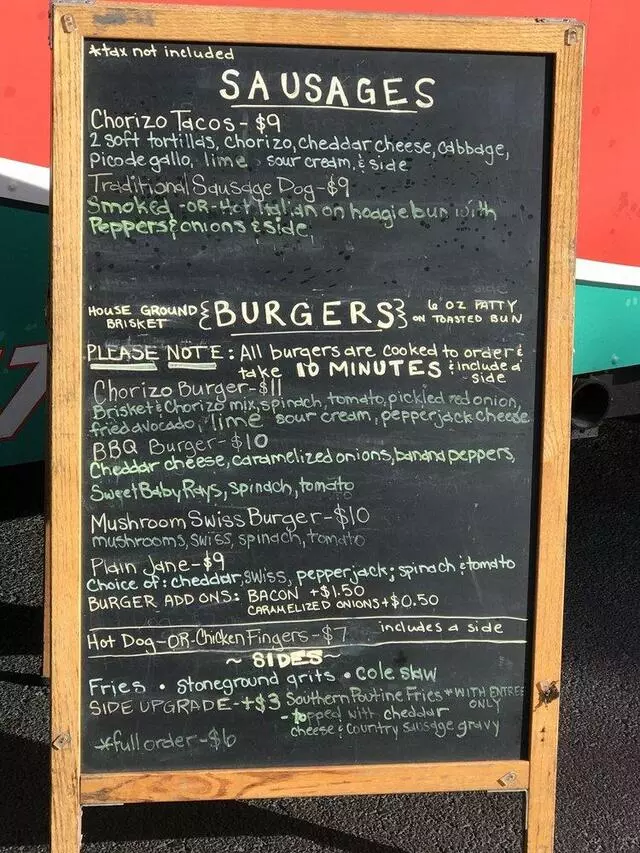 *tax not included
SAUSAGES
Chorizo Tacos - $9
2 soft tortillas, chorizo, cheddar cheese, cabbage,
pico de gallo, lime sour cream, & side
Traditional Sausage Dog - $9
Smoked -OR- Hot Italian on hoagie bun with
Peppers & onions & side
HOUSE GROUND BRISKET {BURGERS} 6 OZ PATTY ON TOASTED BUN
PLEASE NOTE: All burgers are cooked to order &
take 10 MINUTES & include a side
Chorizo Burger - $11
Brisket & Chorizo mix, spinach, tomato, pickled red onion,
fried avocado, lime sour cream, pepperjack cheese
BBQ Burger - $10
Cheddar cheese, caramelized onions, banana peppers,
Sweet Baby Rays, spinach, tomato
Mushroom Swiss Burger - $10
mushrooms, swiss, spinach, tomato
Plain Jane - $9
Choice of: cheddar, swiss, pepperjack; spinach & tomato
BURGER ADD ONS: BACON +$1.50
CARAMELIZED ONIONS +$0.50
Hot Dog -OR- Chicken Fingers - $7 includes a side
~ SIDES ~
Fries • stoneground grits • cole slaw
SIDE UPGRADE - +$3 Southern Poutine Fries * WITH ENTREE ONLY
- topped with cheddar
cheese & country sausage gravy
*full order - $6